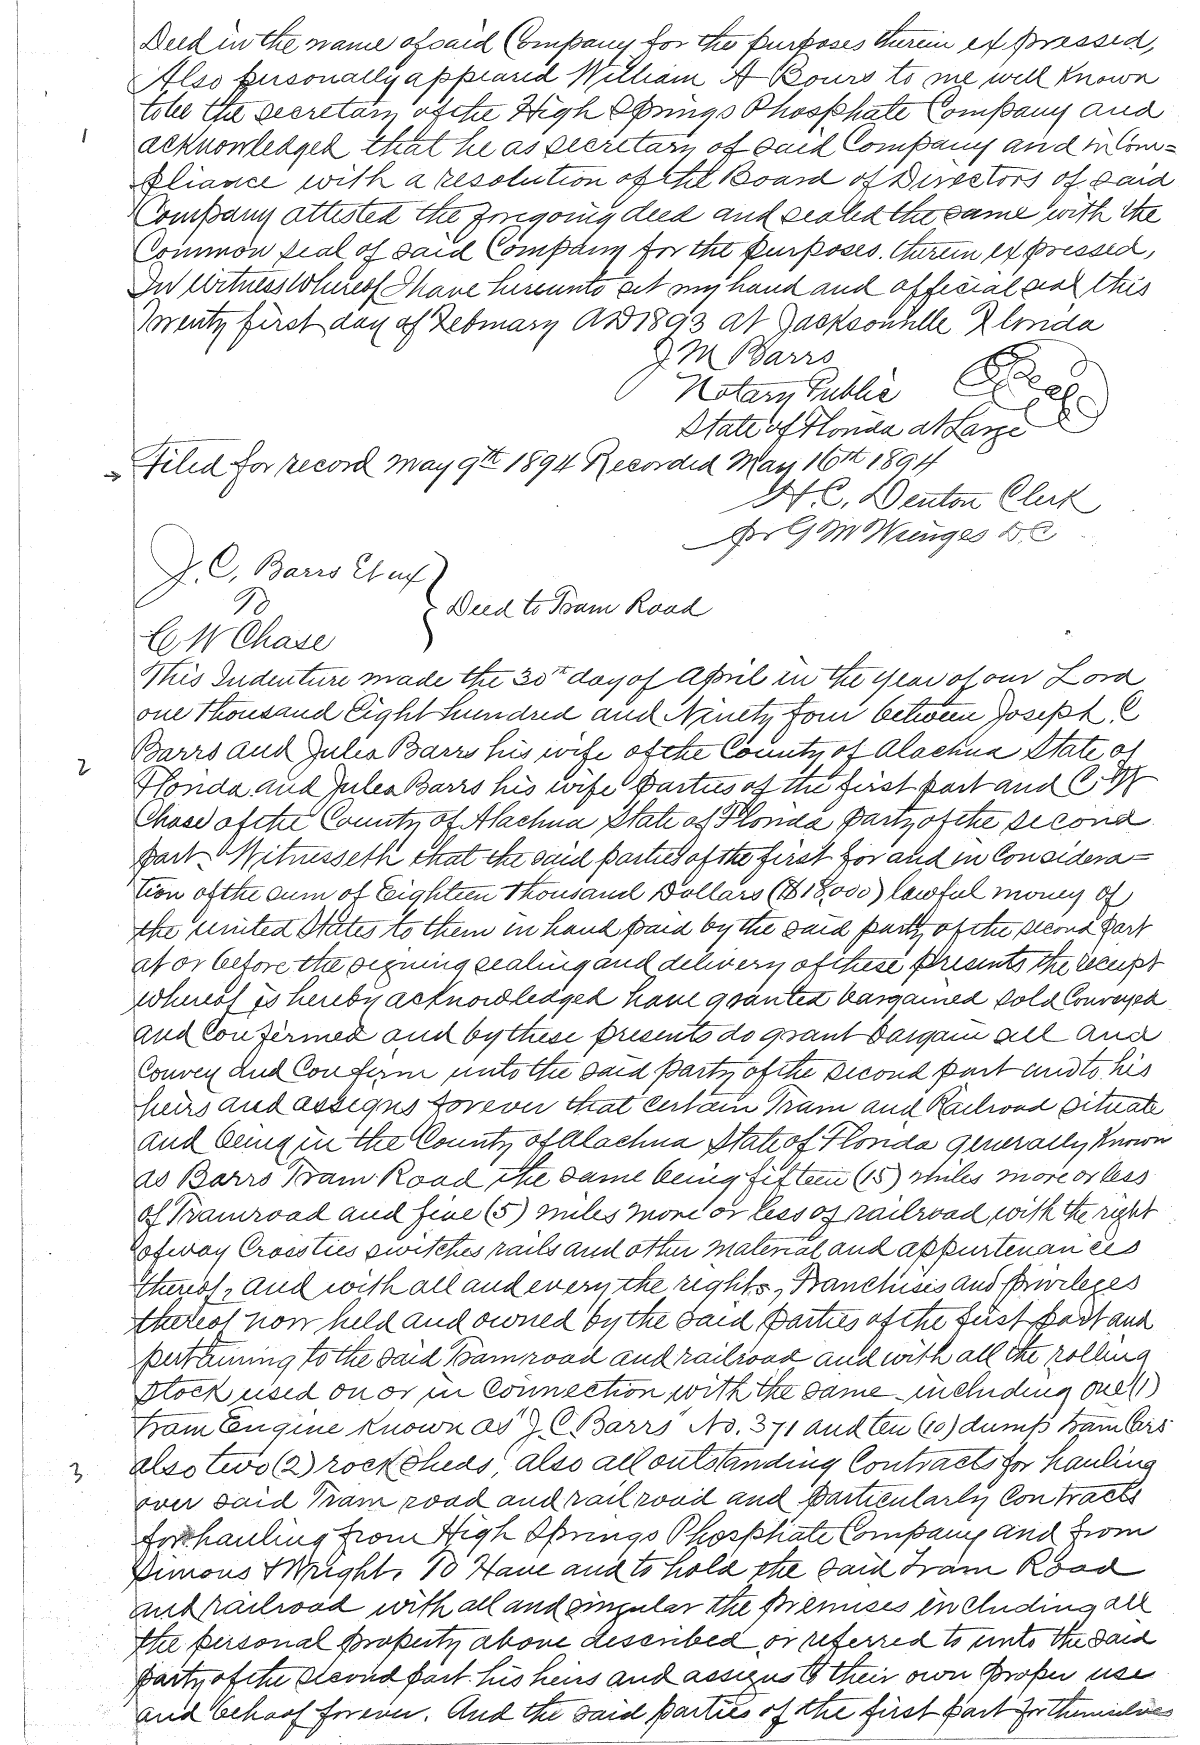 Deed in the name of said Company for the purposes therein expressed,
Also personally appeared William A Bours to me well known
to be the secretary of the High Springs Phosphate Company and
1
acknowledged that he as secretary of said Company and in Com=
pliance with a resolution of the Board of Directors of said
Company attested the foregoing deed and sealed the same with the
Common seal of said Company for the purposes. therein expressed,
In Witness Whereof I have hereunto set my hand and official seal this
Twenty first day of February AD 1893 at Jacksonville Florida
J M Barrs
Notary Public
Seal
State of Florida at Large
Filed for record May 9th 1894 Recorded May 16th 1894
H. C. Denton Clerk
pr G M D.C
J. C, Barrs Et ux
To
Deed to Tram Road
C W Chase
This Indenture made the 30th day of April in the year of our Lord
one thousand Eight hundred and Ninety four between Joseph C
Barrs and Julea Barrs his wife of the County of Alachua State of
2
Florida and Julea Barrs his wife parties of the first part and C. W
Chase of the County of Alachua State of Florida party of the second
part. Witnesseth that the said parties of the first for and in Considera=
tion of the sum of Eighteen thousand Dollars ($18,000) lawful money of
the United States to them in hand paid by the said party of the second part
at or before the signing sealing and delivery of these presents the receipt
whereof is hereby acknowledged have granted bargained sold Conveyed
and Confirmed and by these presents do grant bargain sell and
Convey and Confirm unto the said party of the second part and to his
heirs and assigns forever that certain Tram and Railroad situate
and being in the County of Alachua State of Florida generally known
as Barrs Tram Road the same being fifteen (15) miles more or less
of Tramroad and five (5) miles more or less of railroad with the right
of way Crossties switches rails and other material and appurtenances
thereof, and with all and every the rights, Franchises and privileges
thereof now held and owned by the said parties of the first part and
pertaining to the said Tramroad and railroad and with all the rolling
stock used on or in Connection with the same including one (1)
Tram Engine known as "J. C. Barrs" No. 371 and ten (10) dump tram Cars
3
also two (2) rock sheds, also all outstanding Contracts for hauling
over said Tram road and railroad and particularly Contracts
for hauling from High Springs Phosphate Company and from
Simons & Wright. To Have and to hold the said Tram Road
and railroad with all and singular the premises including all
the personal property above described or referred to unto the said
party of the second part his heirs and assigns to their own proper use
and behoof forever. And the said parties of the first part for themselves